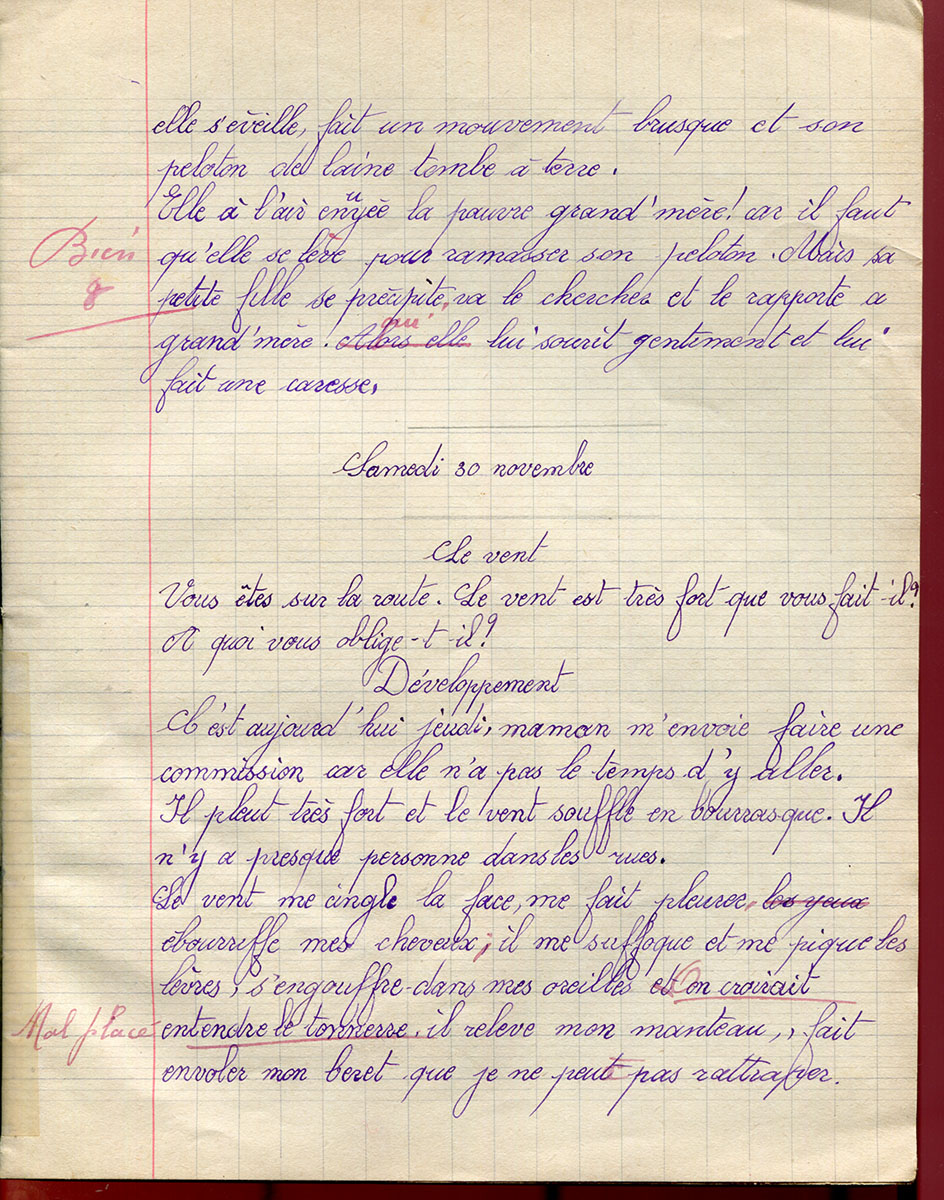 elle s'éveille, fait un mouvement brusque et son
peloton de laine tombe à terre.
Elle à l'air ennuyée la pauvre grand'mère! car il faut
Bien
qu'elle se lève pour ramasser son peloton. Mais sa
8
petite fille se précipite, va le chercher et le rapporte a
grand'mère. Alors elle qui lui sourit gentiment et lui
fait une caresse.
Samedi 30 novembre
Le vent
Vous êtes sur la route. Le vent est très fort que vous fait-il?
A quoi vous oblige-t-il?
Développement
C'est aujourd'hui jeudi, maman m'envoie faire une
commission car elle n'a pas le temps d'y aller.
Il pleut très fort et le vent souffle en bourrasque. Il
n'y a presque personne dans les rues.
Le vent me cingle la face, me fait pleurer, les yeux
ébouriffe mes cheveux; il me suffoque et me pique les
lèvres, s'engouffre dans mes oreilles et On croirait
Mal placé
entendre le tonnerre. il releve mon manteau,, fait
envoler mon beret que je ne peut pas rattraper.